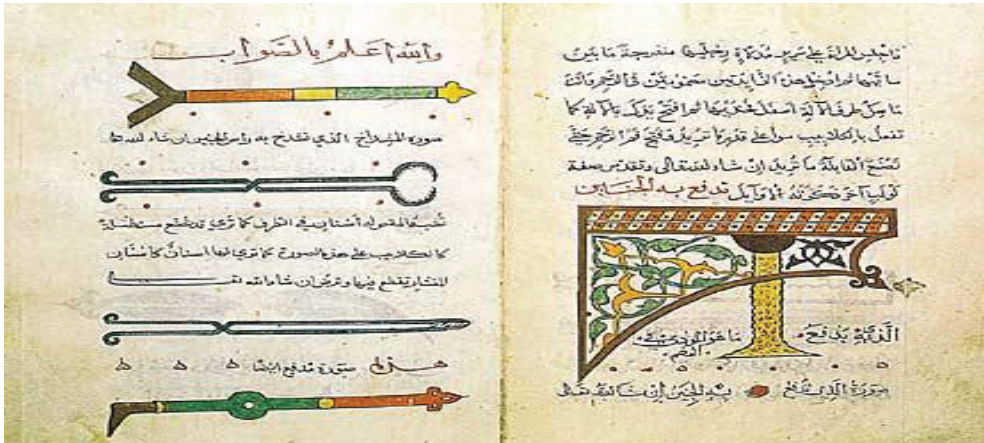 تجلس المراة على سرير مدلاة رجليها منفرجة ما بين
ساقيها ثم ادخل هذه الزايدتين مضمومتين في الرحم وانت
ماسك طرف الالة اسفل فخذيها ثم افتح يدك بالالة كما
تفعل بالكلاليب سوا على قدر ما تريد فتح فم الرحم حتى
تصنع القابلة ما تريد ان شاء الله تعالى وتقدس صفة
لولب اخر ذكرته الاوايل تدفع به الجنين
الذي يدفع ما هو
صورة الذي به الجنين ان شا الله تعالى
والله اعلم بالصواب
صورة المشداخ الذي تشدخ به راس الجنين ان شاء الله تعا
تشبه المقص له اسنان في الطرف كما ترى قد تصنع مستطيلة
كالكلاليب على هذه الصورة كما ترى لها اسنان كاسنان
المنشار يقطع بها وترض ان شاء الله
هذه صورة مدفع ايضا